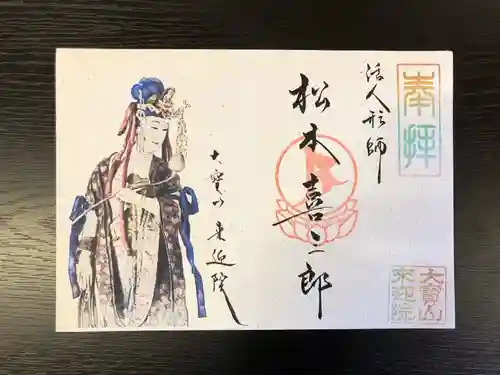 奉拝
活人形師
松本喜三郎
大寳山来迎院
大寳山
来迎院